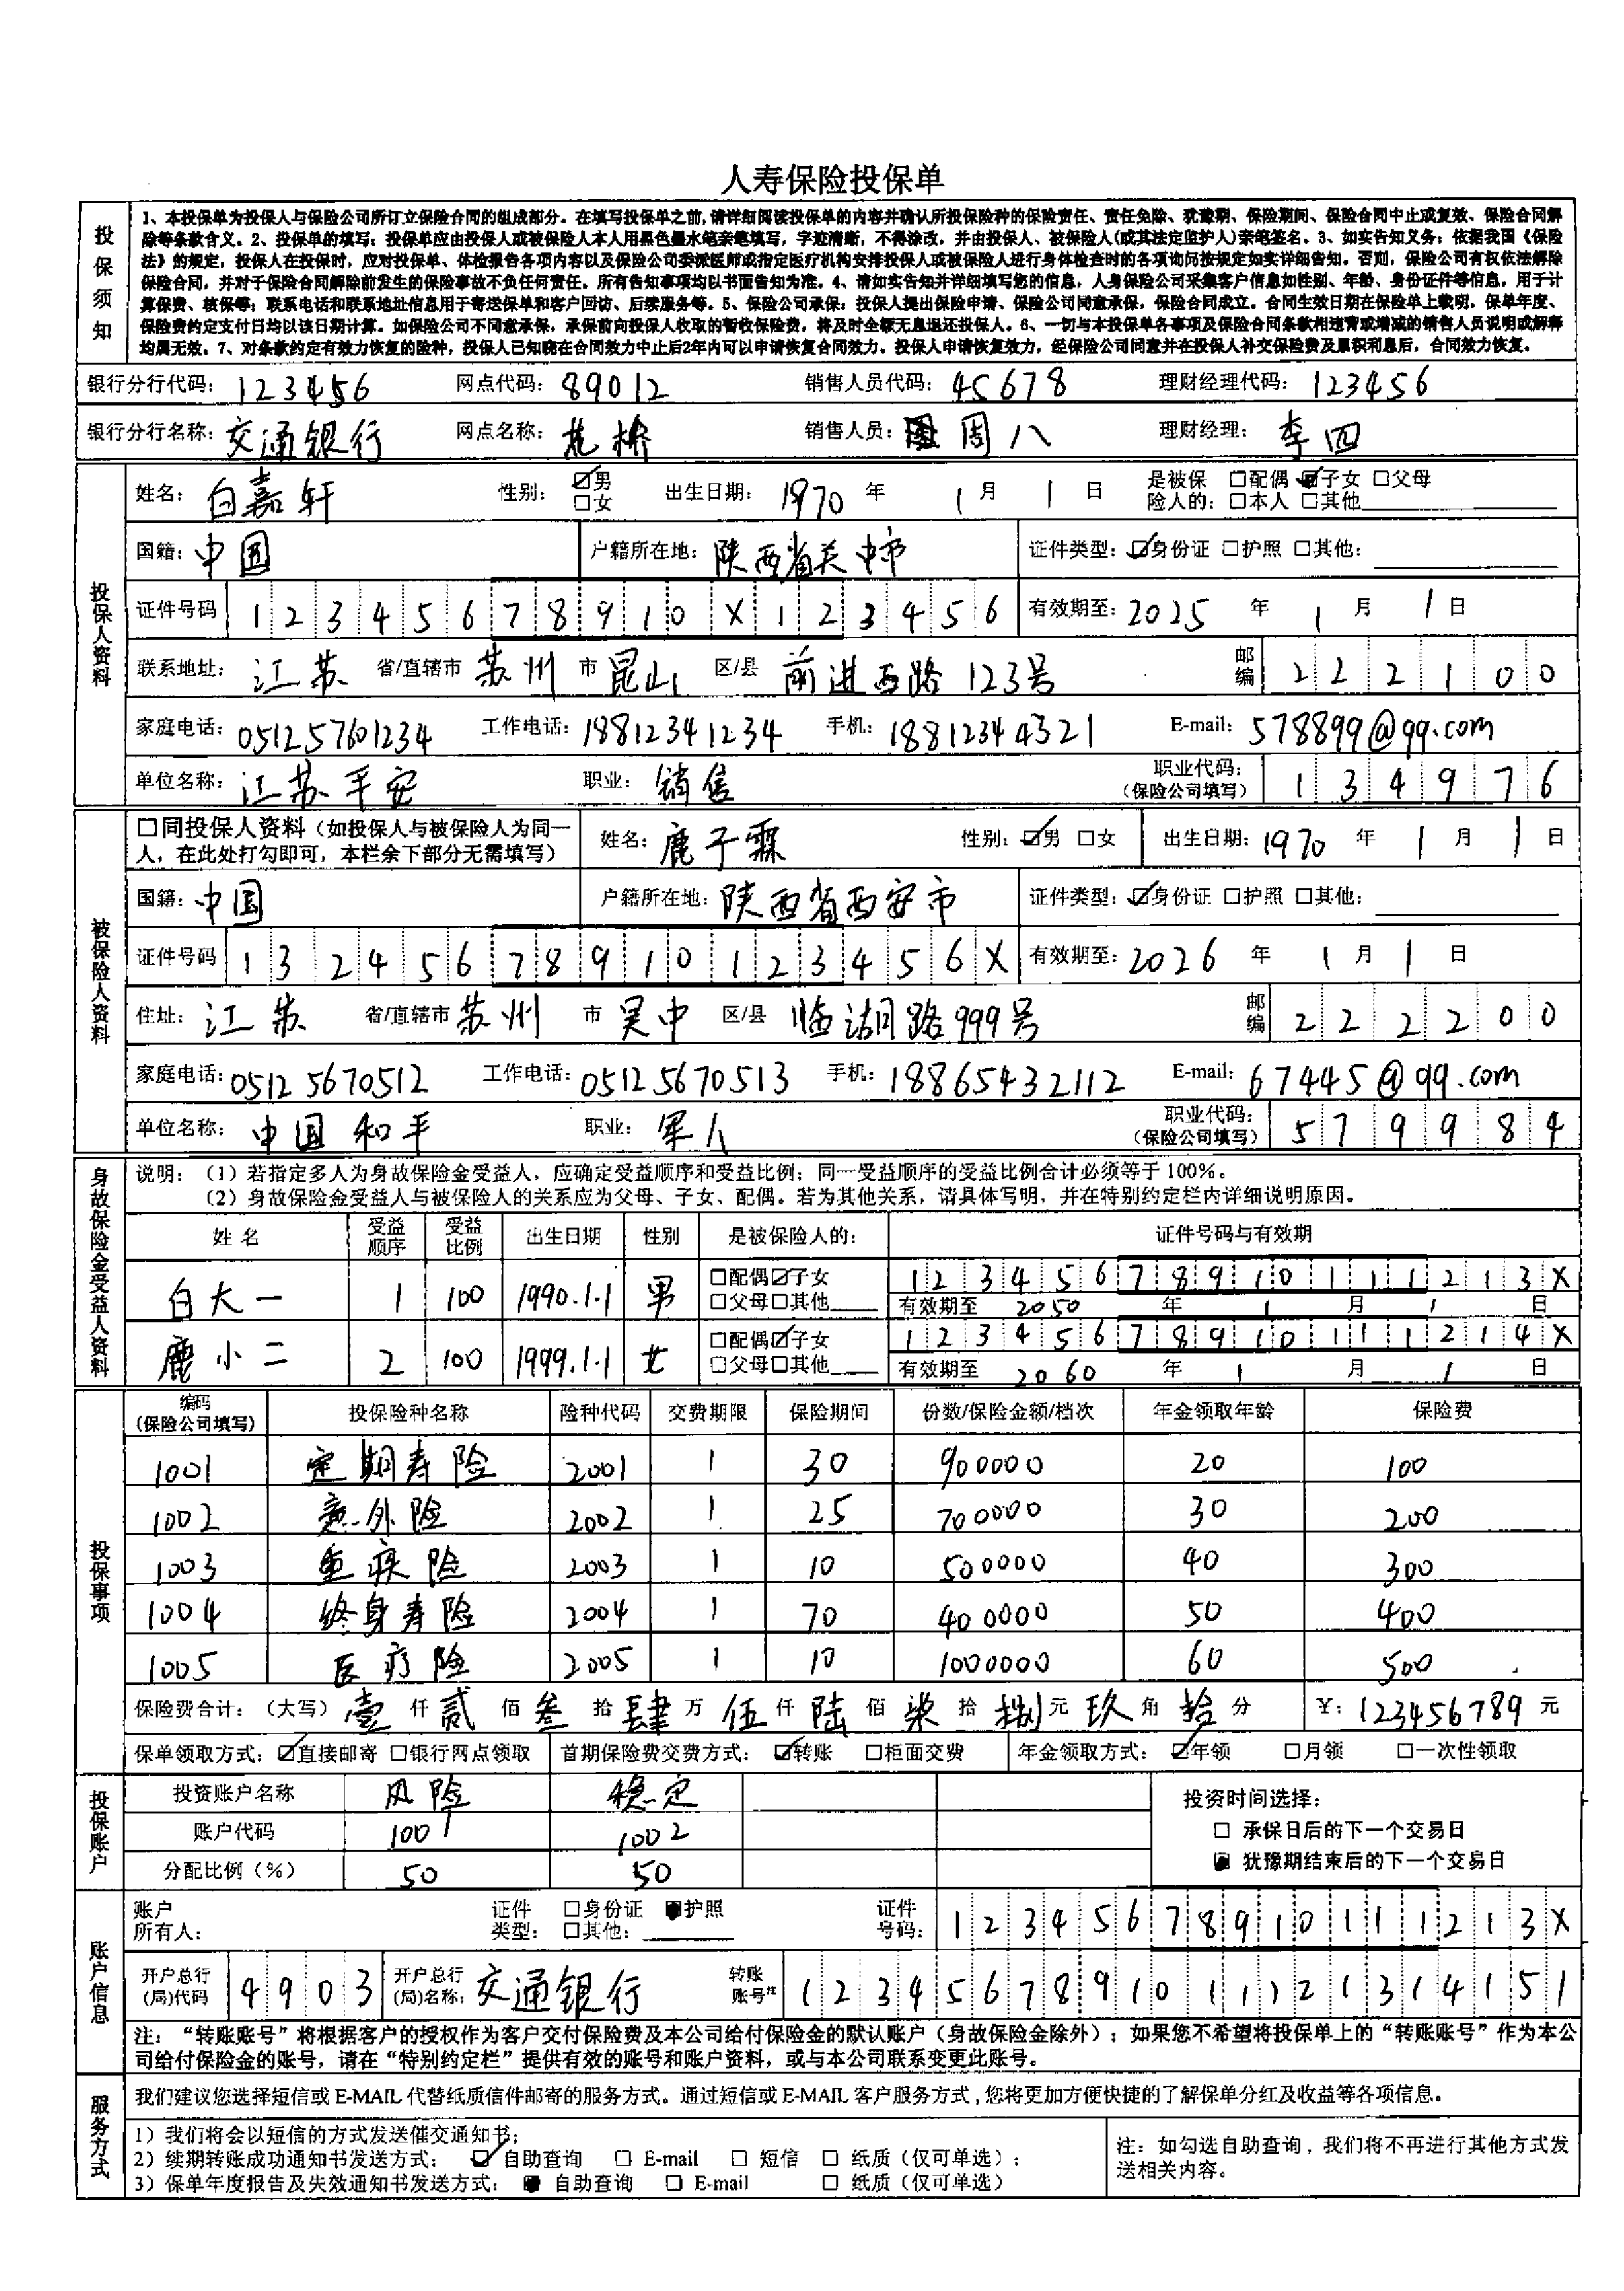 人寿保险投保单
投保须知
1、本投保单为投保人与保险公司所订立保险合同的组成部分。在填写投保单之前,请详细阅读投保单的内容并确认所投保险种的保险责任、责任免除、犹豫期、保险期间、保险合同中止或复效、保险合同解
除等条款含义。2、投保单的填写：投保单应由投保人或被保险人本人用黑色墨水笔亲笔填写，字迹清晰，不得涂改，并由投保人、被保险人(或其法定监护人)亲笔签名。3、如实告知义务：依据我国《保险
法》的规定，投保人在投保时，应对投保单、体检报告各项内容以及保险公司委派医师或指定医疗机构安排投保人或被保险人进行身体检查时的各项询问按规定如实详细告知。否则，保险公司有权依法解除
保险合同，并对于保险合同解除前发生的保险事故不负任何责任。所有告知事项均以书面告知为准。4、请如实告知并详细填写您的信息，人身保险公司采集客户信息如性别、年龄、身份证件等信息，用于计
算保费、核保等；联系电话和联系地址信息用于寄送保单和客户回访、后续服务等。5、保险公司承保：投保人提出保险申请、保险公司同意承保，保险合同成立。合同生效日期在保险单上载明，保单年度、
保险费约定支付日均以该日期计算。如保险公司不同意承保，承保前向投保人收取的暂收保险费，将及时全额无息退还投保人。6、一切与本投保单各事项及保险合同条款相违背或增减的销售人员说明或解释
均属无效。7、对条款约定有效力恢复的险种，投保人已知晓在合同效力中止后2年内可以申请恢复合同效力。投保人申请恢复效力，经保险公司同意并在投保人补交保险费及累积利息后，合同效力恢复。
银行分行代码：123456 网点代码：89012 销售人员代码：45678 理财经理代码：123456
银行分行名称：交通银行 网点名称：花桥 销售人员：周八 理财经理：李四
投保人资料
姓名：白嘉轩 性别：☑男 □女 出生日期：1970 年 1 月 1 日 是被保险人的：□配偶 ☑子女 □父母 □本人 □其他
国籍：中国 户籍所在地：陕西省关中市 证件类型：☑身份证 □护照 □其他：
证件号码 12345678910X123456 有效期至：2025 年 1 月 1 日
联系地址：江苏 省/直辖市 苏州 市 昆山 区/县 前进西路123号 邮编 222100
家庭电话：051257601234 工作电话：18812341234 手机：18812344321 E-mail：578899@qq.com
单位名称：江苏平安 职业：销售 职业代码：（保险公司填写） 134976
被保险人资料
□同投保人资料（如投保人与被保险人为同一人，在此处打勾即可，本栏余下部分无需填写） 姓名：鹿子霖 性别：☑男 □女 出生日期：1970 年 1 月 1 日
国籍：中国 户籍所在地：陕西省西安市 证件类型：☑身份证 □护照 □其他：
证件号码 13245678910123456X 有效期至：2026 年 1 月 1 日
住址：江苏 省/直辖市 苏州 市 吴中 区/县 临湖路999号 邮编 222200
家庭电话：05125670512 工作电话：05125670513 手机：18865432112 E-mail：67445@qq.com
单位名称：中国和平 职业：军人 职业代码：（保险公司填写） 579984
身故保险金受益人资料
说明：（1）若指定多人为身故保险金受益人，应确定受益顺序和受益比例；同一受益顺序的受益比例合计必须等于100%。
（2）身故保险金受益人与被保险人的关系应为父母、子女、配偶。若为其他关系，请具体写明，并在特别约定栏内详细说明原因。
姓名 受益顺序 受益比例 出生日期 性别 是被保险人的： 证件号码与有效期
白大一 1 100 1990.1.1 男 □配偶☑子女 □父母□其他 12345678910111213X
有效期至 2050 年 1 月 1 日
鹿小二 2 100 1999.1.1 女 □配偶☑子女 □父母□其他 12345678910111214X
有效期至 2060 年 1 月 1 日
投保事项
编码（保险公司填写） 投保险种名称 险种代码 交费期限 保险期间 份数/保险金额/档次 年金领取年龄 保险费
1001 定期寿险 2001 1 30 900000 20 100
1002 意外险 2002 1 25 700000 30 200
1003 重疾险 2003 1 10 500000 40 300
1004 终身寿险 2004 1 70 400000 50 400
1005 医疗险 2005 1 10 1000000 60 500
保险费合计：（大写）壹 仟 贰 佰 叁 拾 肆 万 伍 仟 陆 佰 柒 拾 捌 元 玖 角 拾 分 ￥：123456789 元
保单领取方式：☑直接邮寄 □银行网点领取 首期保险费交费方式：☑转账 □柜面交费 年金领取方式：☑年领 □月领 □一次性领取
投保账户
投资账户名称 风险 稳定 投资时间选择：
账户代码 1001 1002 □ 承保日后的下一个交易日
分配比例（%） 50 50 ☑ 犹豫期结束后的下一个交易日
账户信息
账户所有人： 证件类型：□身份证 ☑护照 □其他： 证件号码：12345678910111213X
开户总行(局)代码 4903 开户总行(局)名称：交通银行 转账账号注 123456789101121314151
注：“转账账号”将根据客户的授权作为客户交付保险费及本公司给付保险金的默认账户（身故保险金除外）；如果您不希望将投保单上的“转账账号”作为本公
司给付保险金的账号，请在“特别约定栏”提供有效的账号和账户资料，或与本公司联系变更此账号。
服务方式
我们建议您选择短信或 E-MAIL 代替纸质信件邮寄的服务方式。通过短信或 E-MAIL 客户服务方式，您将更加方便快捷的了解保单分红及收益等各项信息。
1）我们将会以短信的方式发送催交通知书；
2）续期转账成功通知书发送方式：☑ 自助查询 □ E-mail □ 短信 □ 纸质（仅可单选）；
3）保单年度报告及失效通知书发送方式：☑ 自助查询 □ E-mail □ 纸质（仅可单选）
注：如勾选自助查询，我们将不再进行其他方式发
送相关内容。